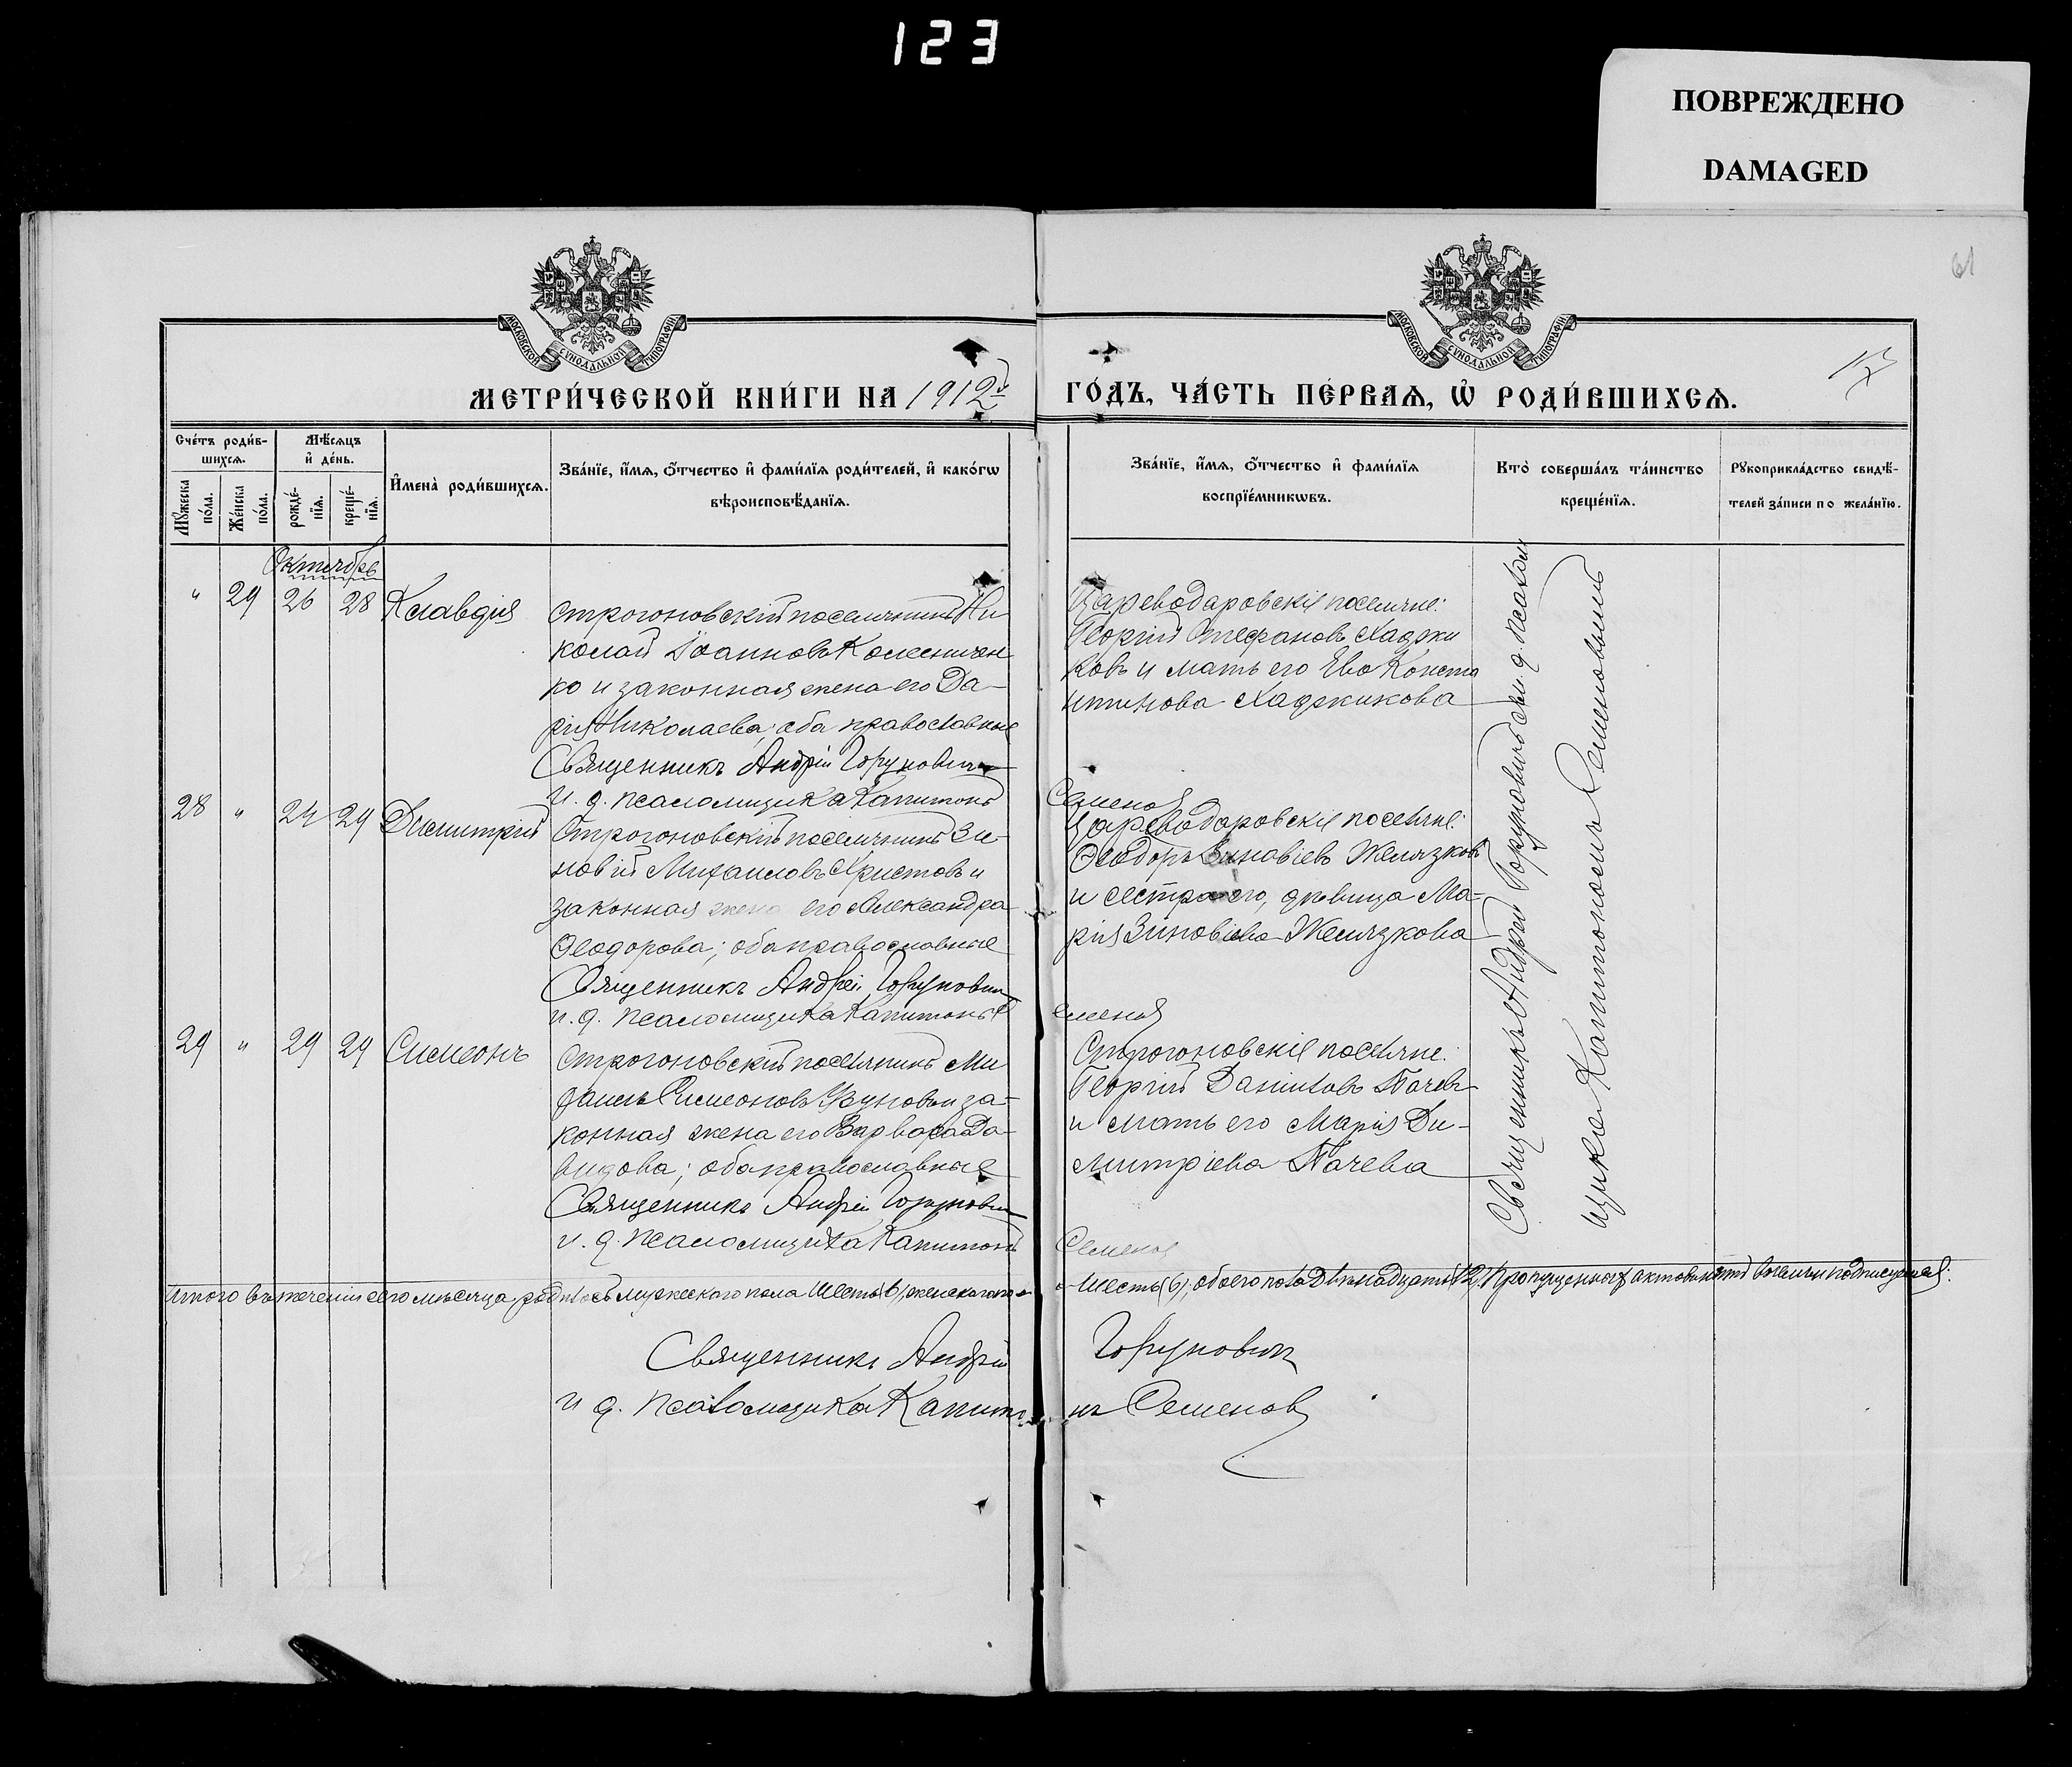 123
ПОВРЕЖДЕНО
DAMAGED
61
МОСКОВСКОЙ СѴНОДАЛЬНОЙ ТИПОГРАФІИ
МОСКОВСКОЙ СѴНОДАЛЬНОЙ ТИПОГРАФІИ
МЕТРИ́ЧЕСКОЙ КНИ́ГИ НА 1912 ГО́ДЪ, ЧА́СТЬ ПЕ́РВАѦ, Ѡ҆ РОДИ́ВШИХСѦ.
Сче́тъ роди́в-
шихсѧ.
Мꙋ́жеска по́ла.
Же́нска по́ла.
Мѣ́сѧцъ
и҆ де́нь.
рожде́-
нїѧ.
креще́-
нїѧ.
И҆мена̀ роди́вшихсѧ.
Зва́нїе, и҆́мѧ, ѻ҆́тчество и҆ фами́лїѧ роди́телей, и҆ како́гѡ
вѣроисповѣ́данїѧ.
Зва́нїе, и҆́мѧ, ѻ҆́тчество и҆ фами́лїѧ
воспрїе́мникѡвъ.
Кто̀ соверша́лъ та́инство
креще́нїѧ.
Рꙋкоприкла́дство свидѣ́-
телей за́писи по жела́нїю.
Октябрь
" 29 26 28 Клавдія
Строгоновскій поселянинъ Ни
колай Іоанновъ Колесничен
ко и законная жена его Да-
рія Николаева; оба православные
Священникъ Андрей Горунович
И. д. псаломщика Капитонъ Семенов
Цареводаровскіе поселяне:
Георгій Стефановъ Хаджи
ковъ и мать его Ева Конста
нтинова Хаджикова
28 " 24 29 Димитрій
Строгоновскій поселянинъ Зи-
новій Михаиловъ Христовъ и
законная жена его Александра
Ѳеодорова; оба православные
Священникъ Андрей Горунович
и. д. псаломщика Капитонъ Семенов
Цареводаровскіе поселяне:
Ѳеодоръ Зиновіевъ Желязковъ
и сестра его, дѣвица Ма-
рія Зиновіева Желязкова
29 " 29 29 Симеонъ
Строгоновскій поселянинъ Ми
хаилъ Симеоновъ Узуновъ и за-
конная жена его Варвара Да-
видова; оба православные
Священникъ Андрей Горунович
и. д. псаломщика Капитонъ Семенов
Строгоновскіе поселяне:
Георгій Даниловъ Пачевъ
и мать его Марія Ди-
митріева Пачева
Священникъ Андрей Горуновичъ съ и. д. псалом
щика Капитономъ Семеновымъ
Итого въ теченіи сего мѣсяца родилось мужескаго пола шесть (6), женскаго пола шесть (6), обоего пола двѣнадцать (12). Пропущенныхъ актовъ нѣтъ въ чемъ и подписуемся:
Священникъ Андрей Горунович
и д. псаломщика Капитонъ Семенов